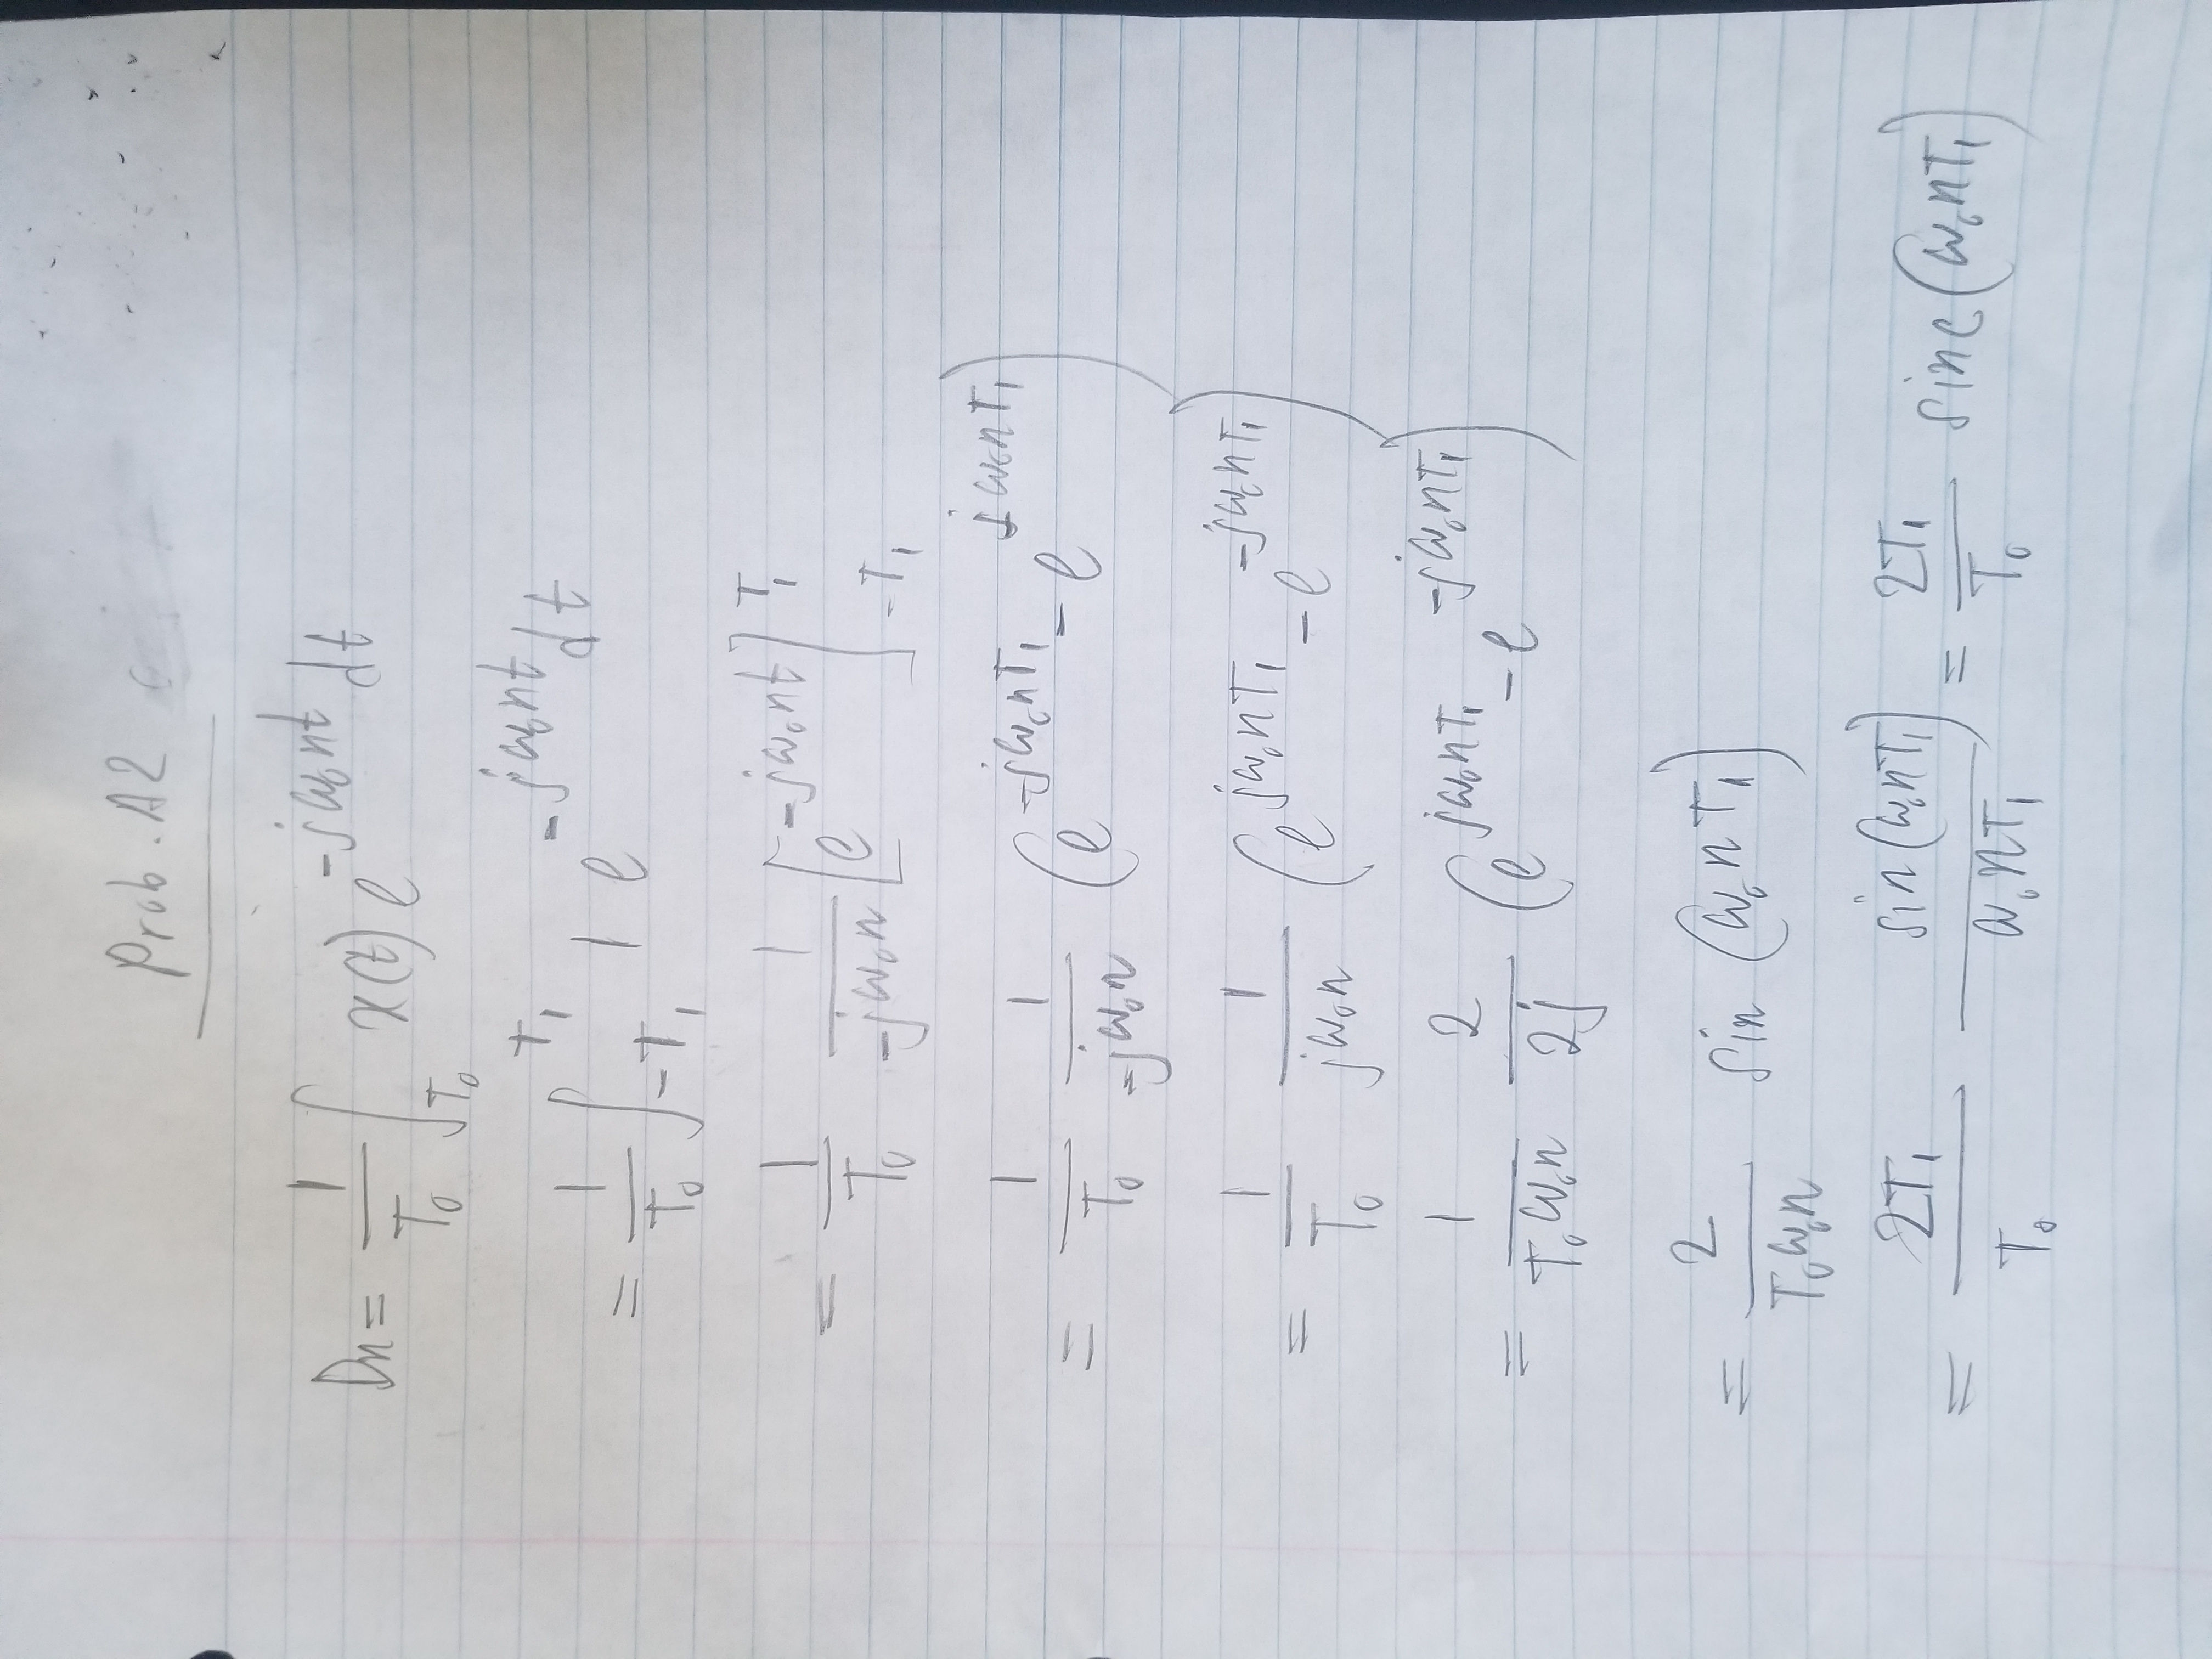 Prob. A2
Dn = 1/T₀ ∫_T₀ x(t) e^(-jω₀nt) dt
= 1/T₀ ∫_(-T₁)^(T₁) 1 e^(-jω₀nt) dt
= 1/T₀ 1/(-jω₀n) [e^(-jω₀nt)]_(-T₁)^(T₁)
= 1/T₀ 1/(-jω₀n) (e^(-jω₀nT₁) - e^(jω₀nT₁))
= 1/T₀ 1/(jω₀n) (e^(jω₀nT₁) - e^(-jω₀nT₁))
= 1/(T₀ω₀n) 2/(2j) (e^(jω₀nT₁) - e^(-jω₀nT₁))
= 2/(T₀ω₀n) sin(ω₀nT₁)
= 2T₁/T₀ sin(ω₀nT₁)/(ω₀nT₁) = 2T₁/T₀ sinc(ω₀nT₁)